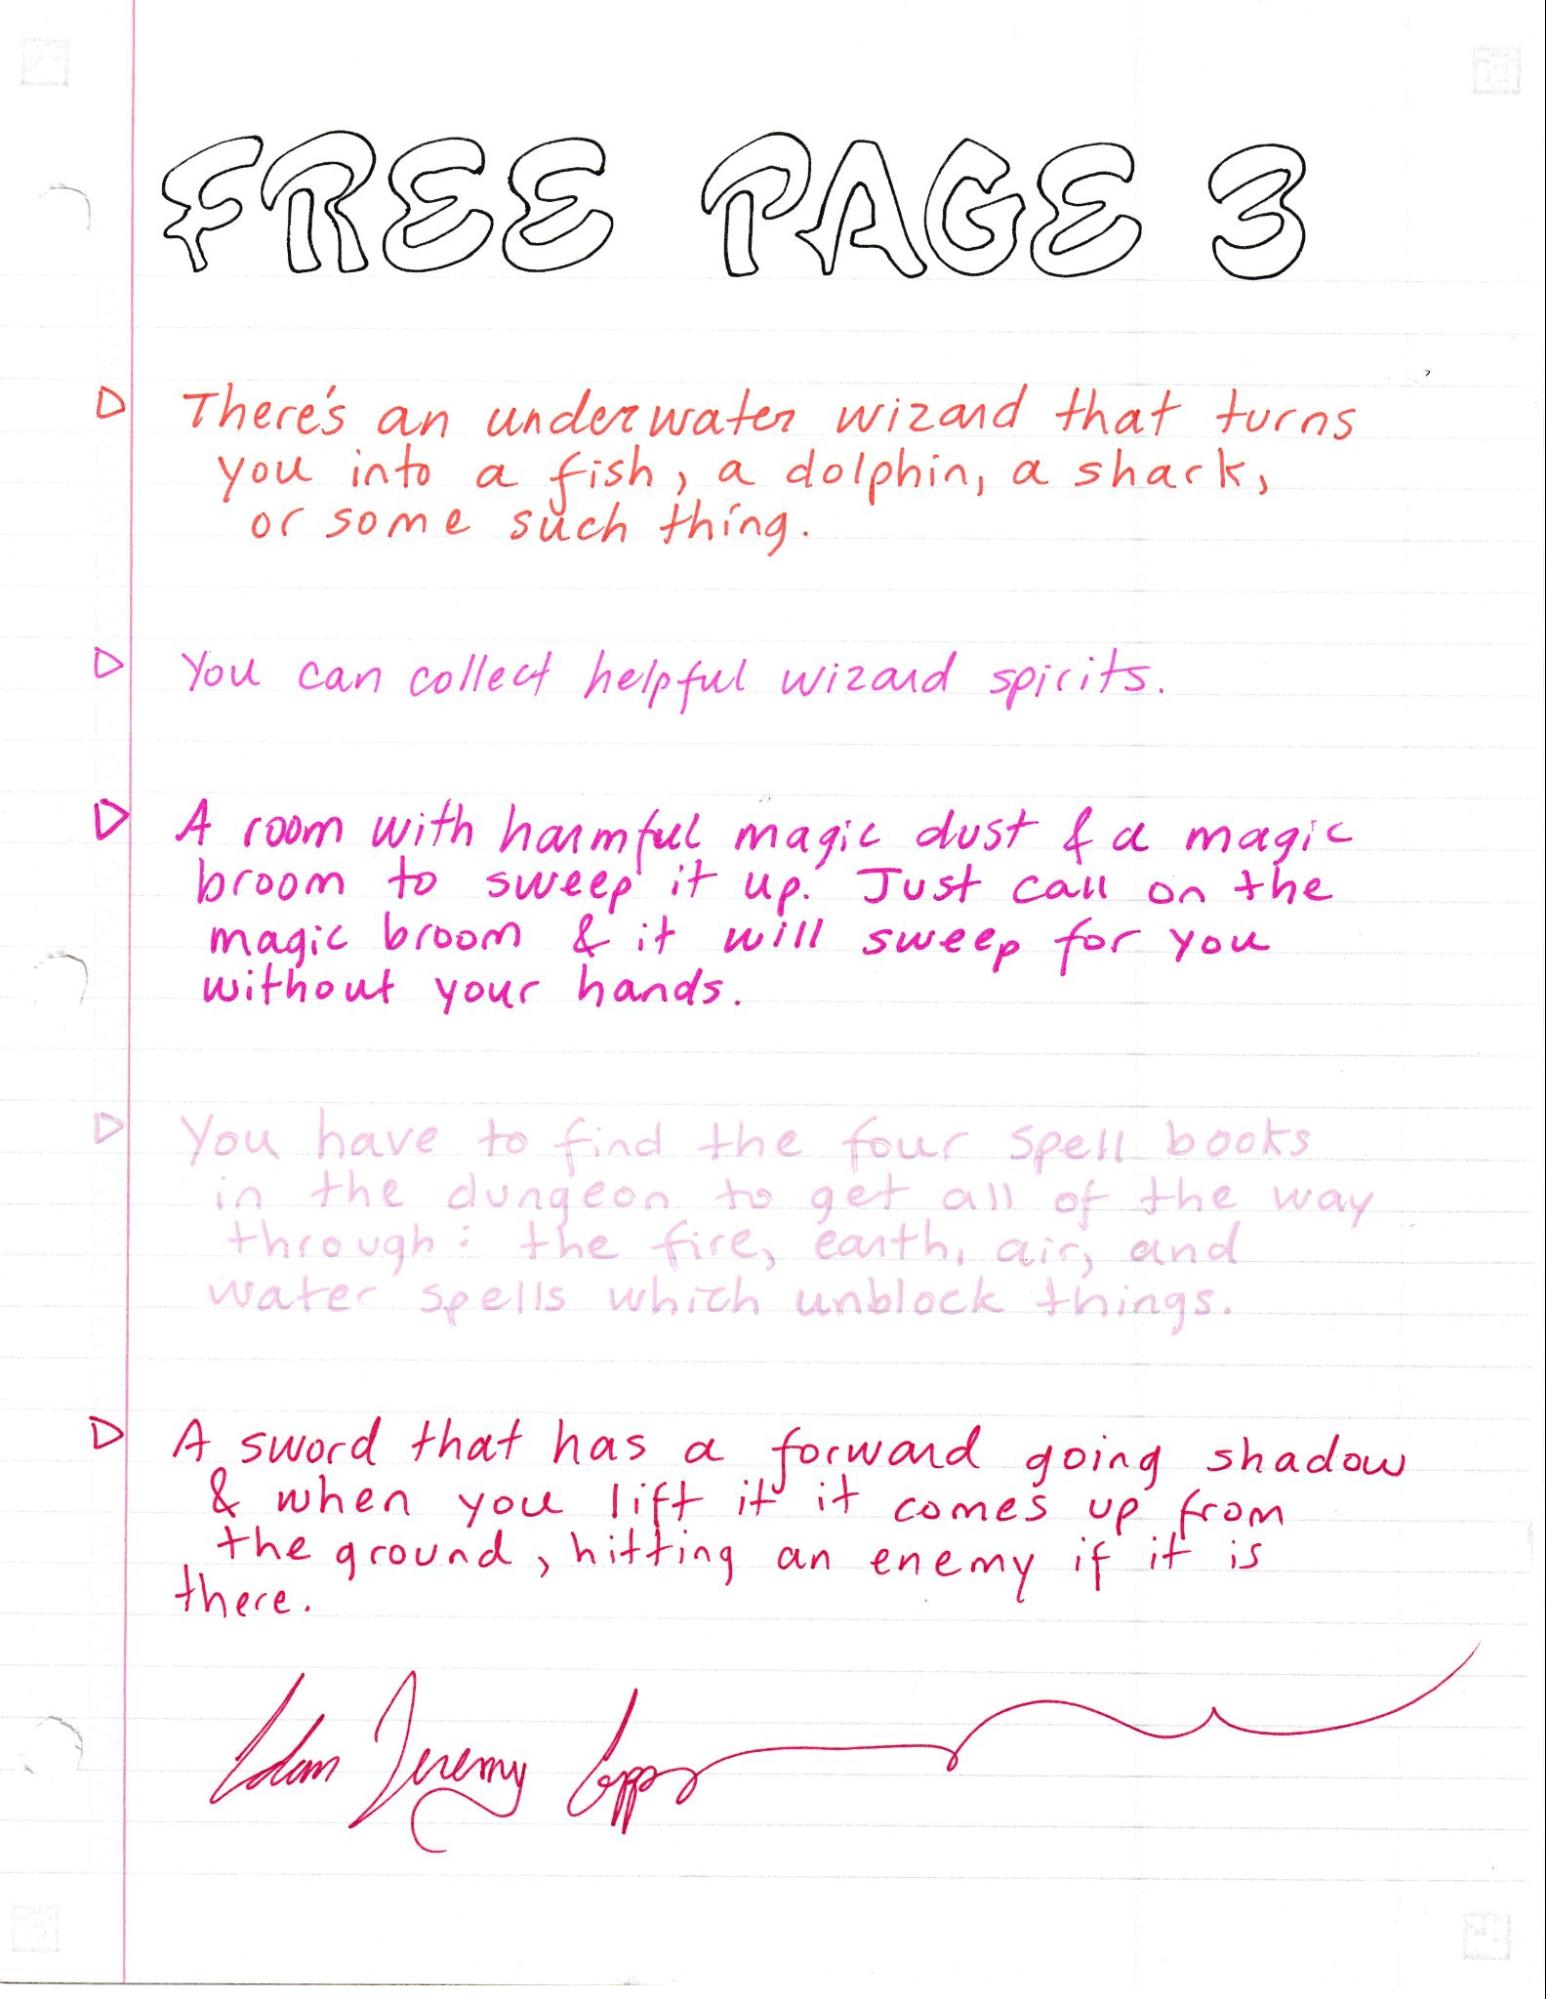 FREE PAGE 3
There's an underwater wizard that turns
you into a fish, a dolphin, a shark,
or some such thing.
You can collect helpful wizard spirits.
A room with harmful magic dust & a magic
broom to sweep it up. Just call on the
magic broom & it will sweep for you
without your hands.
You have to find the four spell books
in the dungeon to get all of the way
through: the fire, earth, air, and
water spells which unblock things.
A sword that has a forward going shadow
& when you lift it it comes up from
the ground, hitting an enemy if it is
there.
Adam Jeremy Capps